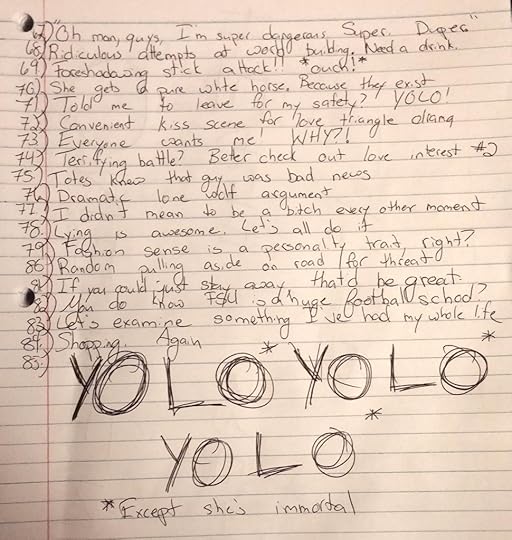 67) "Oh man, guys, I'm super dangerous. Super. Duper."
68) Ridiculous attempts at world building. Need a drink.
69) Foreshadowing stick attack!! *ouch!*
70) She gets a pure white horse. Because they exist
71) Told me to leave for my safety? YOLO!
72) Convenient kiss scene for love triangle
73) Everyone wants me! WHY?!
74) Terrifying battle? Better check out love interest #2
75) Totes knew that guy was bad news
76) Dramatic lone wolf argument
77) I didn't mean to be a bitch every other moment
78) Lying is awesome. Let's all do it
79) Fashion sense is a personality trait, right?
80) Random pulling aside on road for threat
81) If you could just stay away, that'd be great.
82) You do know FSU is a huge football school?
83) Let's examine something I've had my whole life
84) Shopping. Again
85)
YOLO* YOLO*
YOLO*
*Except she's immortal